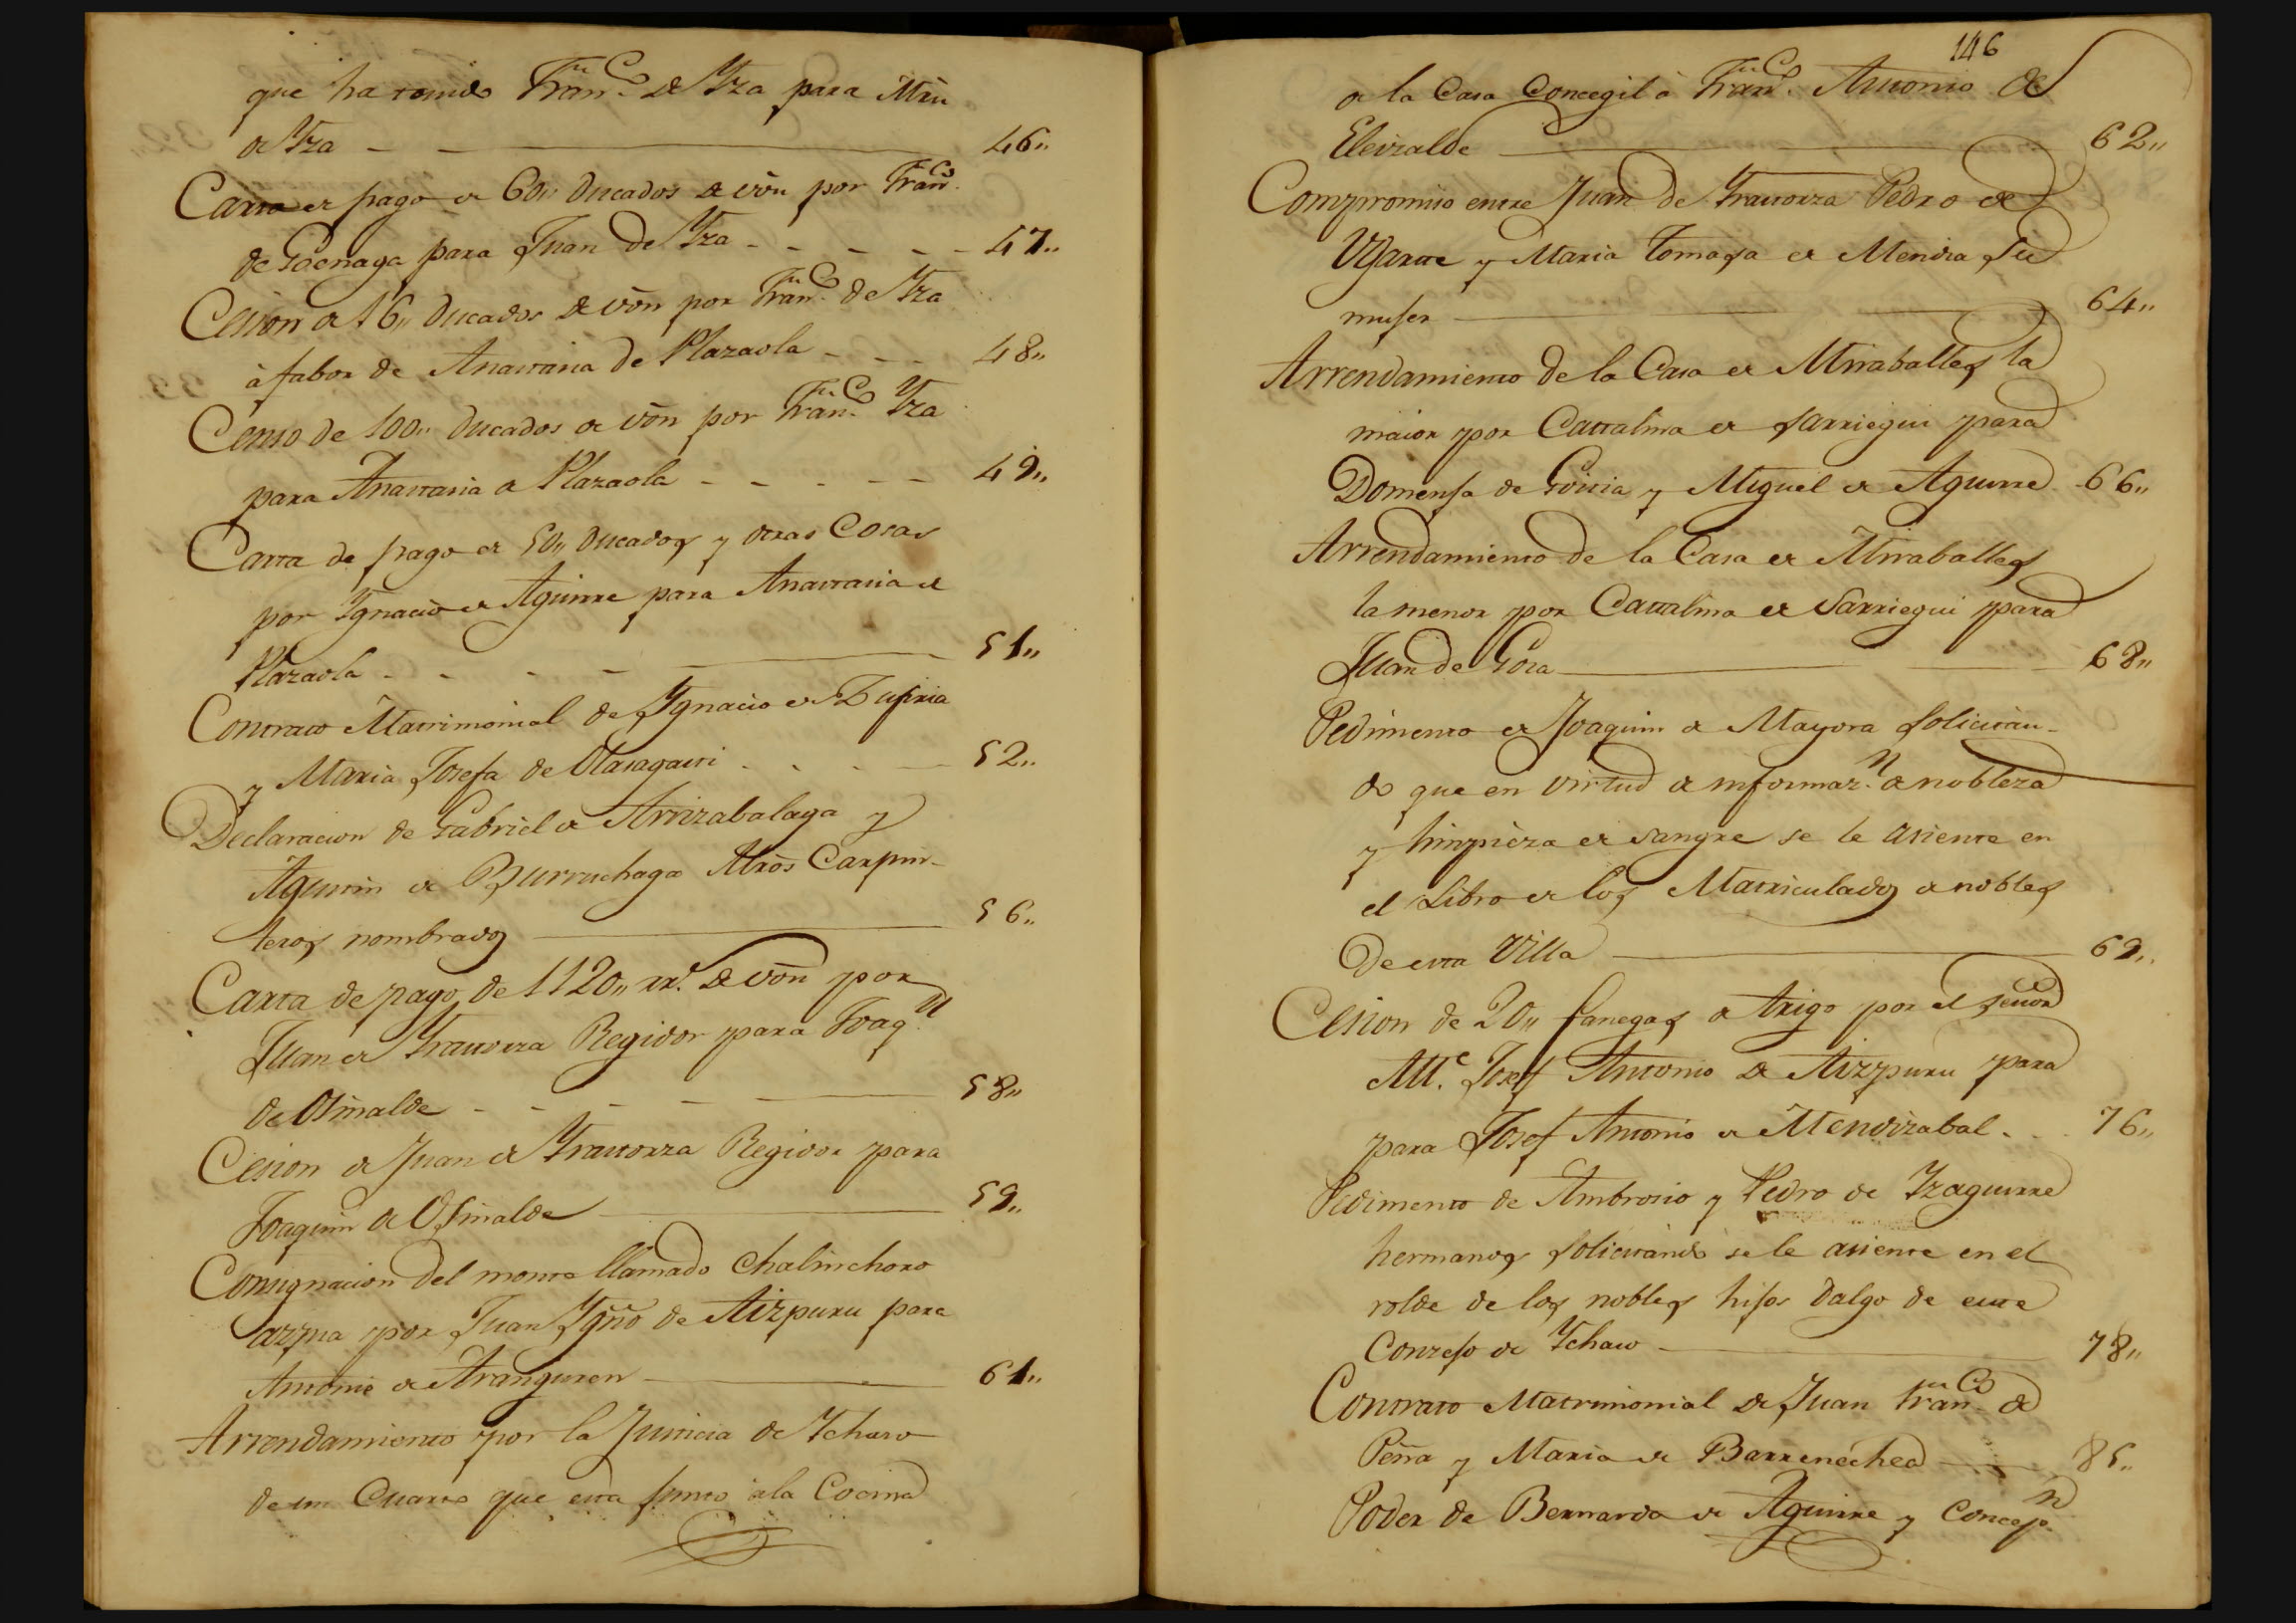 que ha tenido Fran.co de Yza para Mrn
de Yza - - 46,,
Carta de pago de 60,, Ducados de von por Fran.co
de Goenaga para Juan de Yza - - - - - 47,,
Cesion de 16,, Ducados de von por Fran.co de Yza
à fabor de Anastasia de Plazaola - - - 48,,
Censo de 100,, Ducados de von por Fran.co Yza
para Anastasia de Plazaola - - - - - 49,,
Carta de pago de 50,, Ducados y otras Cosas
por Ygnacio de Aguirre para Anastasia de
Plazaola - - - - 51,,
Contrato Matrimonial de Ygnacio de Zupiria
y Maria Josefa de Olasagasti - - - - 52,,
Declaracion de Gabriel de Arrizabalaga y
Agustin de Burruchaga Mros Carpin-
teros nombrados 56,,
Carta de pago de 1120,, rr.s de von por
Juan de Yrastorza Regidor para Joaq.n
de Osinalde - - - - 58,,
Cesion de Juan de Yrastorza Regidor para
Joaquin de Osinalde 59,,
Consignacion del monte llamado Chalinchoro
azpia por Juan Ygño de Aizpuru para
Antonio de Aranguren 61,,
Arrendamiento por la Justicia de Ychaso
de un Cuarto que esta junto à la Cocina
146
de la Casa Concegil à Fran.co Antonio de
Eleizalde 62,,
Compromiso entre Juan de Yrastorza Pedro de
Ugarte y Maria Tomasa de Mendia su
muger 64,,
Arrendamiento de la Casa de Miraballes la
maior por Cattalina de Sarriegui para
Domensa de Goitia y Miguel de Aguirre 66,,
Arrendamiento de la Casa de Miraballes
la menor por Cattalina de Sarriegui para
Juan de Goia 68,,
Pedimento de Joaquin de Mayora solicitan-
do que en virtud de informaz.n de nobleza
y limpieza de sangre se le asiente en
el Libro de los Matriculados de nobles
de esta Villa 69,,
Cesion de 20,, fanegas de trigo por el señor
All.e Josef Antonio de Aizpuru para
para Josef Antonio de Mendizabal - - 76,,
Pedimento de Ambrosio y Pedro de Yzaguirre
hermanos solicitando se le asiente en el
rolde de los nobles hijos dalgo de este
Conzejo de Ychaso 78,,
Contrato Matrimonial de Juan Fran.co de
Peña y Maria de Barrenechea 85,,
Poder de Bernarda de Aguirre y Concep.n